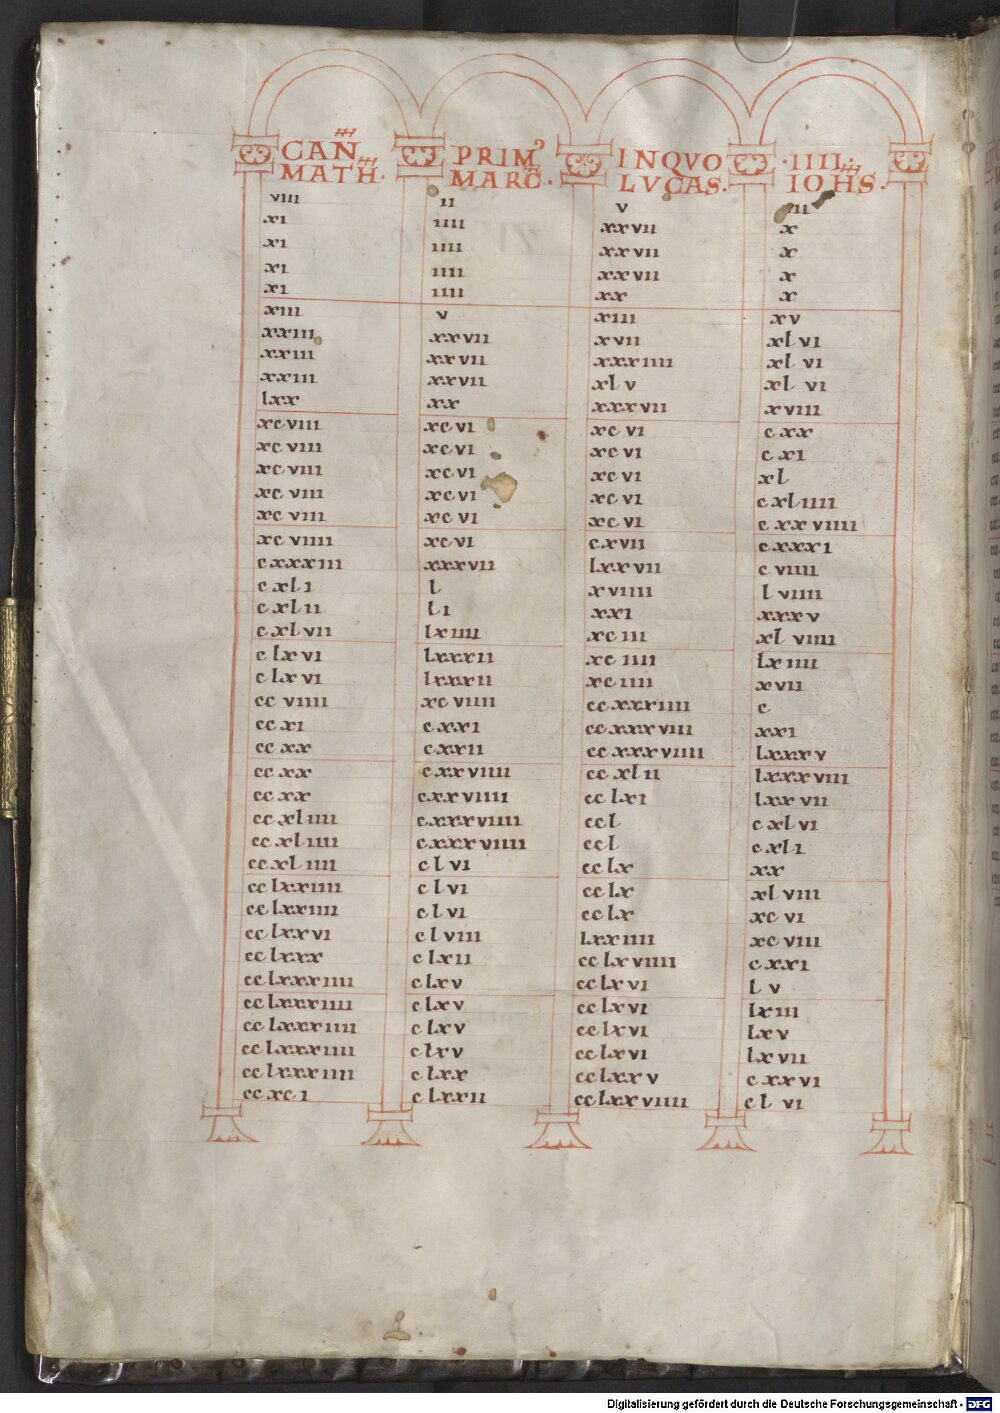 CAÑ PRIM⁹ INQVO ·IIII·
MATH· MARC̄· LVCAS· IOHS·
viii ii v iii
xi iiii xxvii x
xi iiii xxvii x
xi iiii xxvii x
xi iiii xx x
xiii v xiii xv
xxiii xxvii xvii xlvi
xxiii xxvii xxxiiii xlvi
xxiii xxvii xlv xlvi
lxx xx xxxvii xviii
xcviii xcvi xcvi cxx
xcviii xcvi xcvi cxi
xcviii xcvi xcvi xl
xcviii xcvi xcvi cxliiii
xcviii xcvi xcvi cxxviiii
xcviiii xcvi cxvii cxxxi
cxxxiii xxxvii lxxvii cviiii
cxli l xviiii lviiii
cxlii li xxi xxxv
cxlvii lxiiii xciii xlviiii
clxvi lxxxii xciiii lxiiii
clxvi lxxxii xciiii xvii
ccviiii xcviiii ccxxxiiii c
ccxi cxxi ccxxxviii xxi
ccxx cxxii ccxxxviiii lxxxv
ccxx cxxviiii ccxlii lxxxviii
ccxx cxxviiii cclxi lxxvii
ccxliiii cxxxviiii ccl cxlvi
ccxliiii cxxxviiii ccl cxli
ccxliiii clvi cclx xx
cclxxiiii clvi cclx xlviii
cclxxiiii clvi cclx xcvi
cclxxvi clviii lxxiiii xcviii
cclxxx clxii cclxviiii cxxi
cclxxxiiii clxv cclxvi lv
cclxxxiiii clxv cclxvi lxiii
cclxxxiiii clxv cclxvi lxv
cclxxxiiii clxv cclxvi lxvii
cclxxxiiii clxx cclxxv cxxvi
ccxci clxxii cclxxviiii clvi
Digitalisierung gefördert durch die Deutsche Forschungsgemeinschaft - DFG